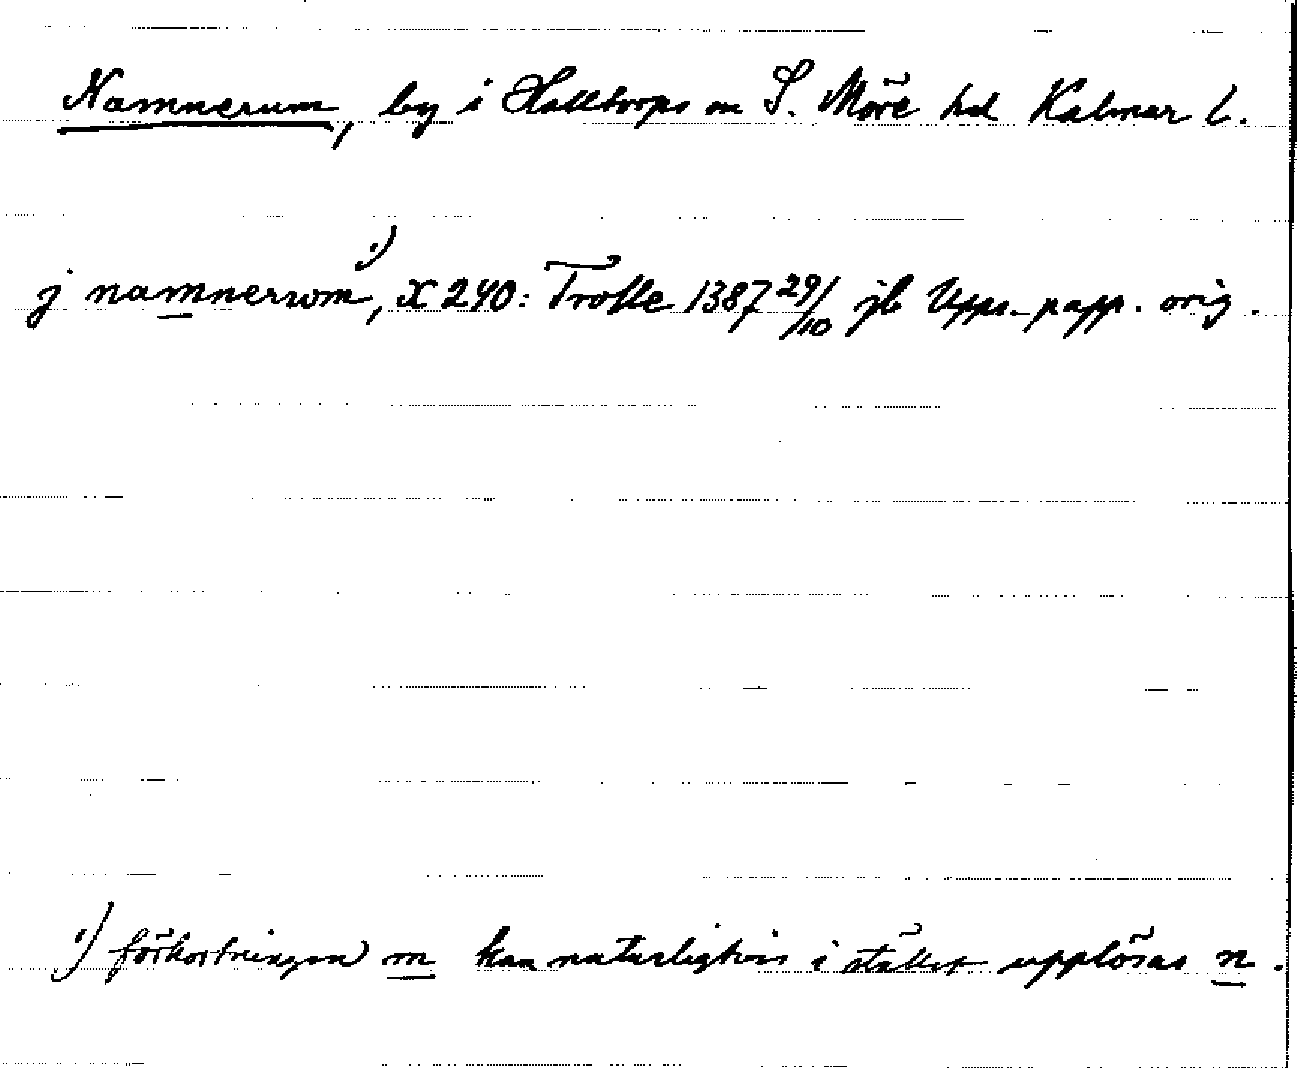 Namnerum, by i Halltorps sn S. Möre hd Kalmar l.
j namnerwm ¹), X 240: Trolle 1387 29/10 jb Upps. papp. orig.
¹) förkortningen m kan naturligtvis i stället upplösas n.